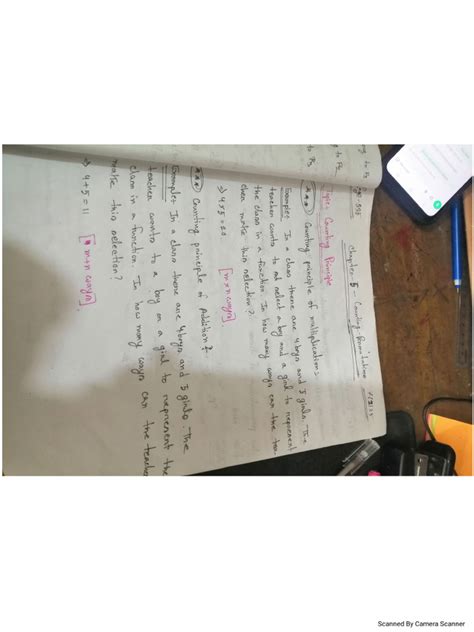 Chapter-5 - Counting Permutations
Type: Counting Principle
*** Counting principle of multiplication:
Example: In a class there are 4 boys and 5 girls. The
teacher wants to select a boy and a girl to represent
the class in a function. In how many ways can the tea-
cher make this selection?
⇒ 4x5 = 20 [m x n ways]
*** Counting principle of Addition:
Example: In a class there are 4 boys and 5 girls. The
teacher wants to a boy or a girl to represent the
class in a function. In how many ways can the teacher
make this selection?
⇒ 4+5 = 11 [m+n ways]
Scanned By Camera Scanner